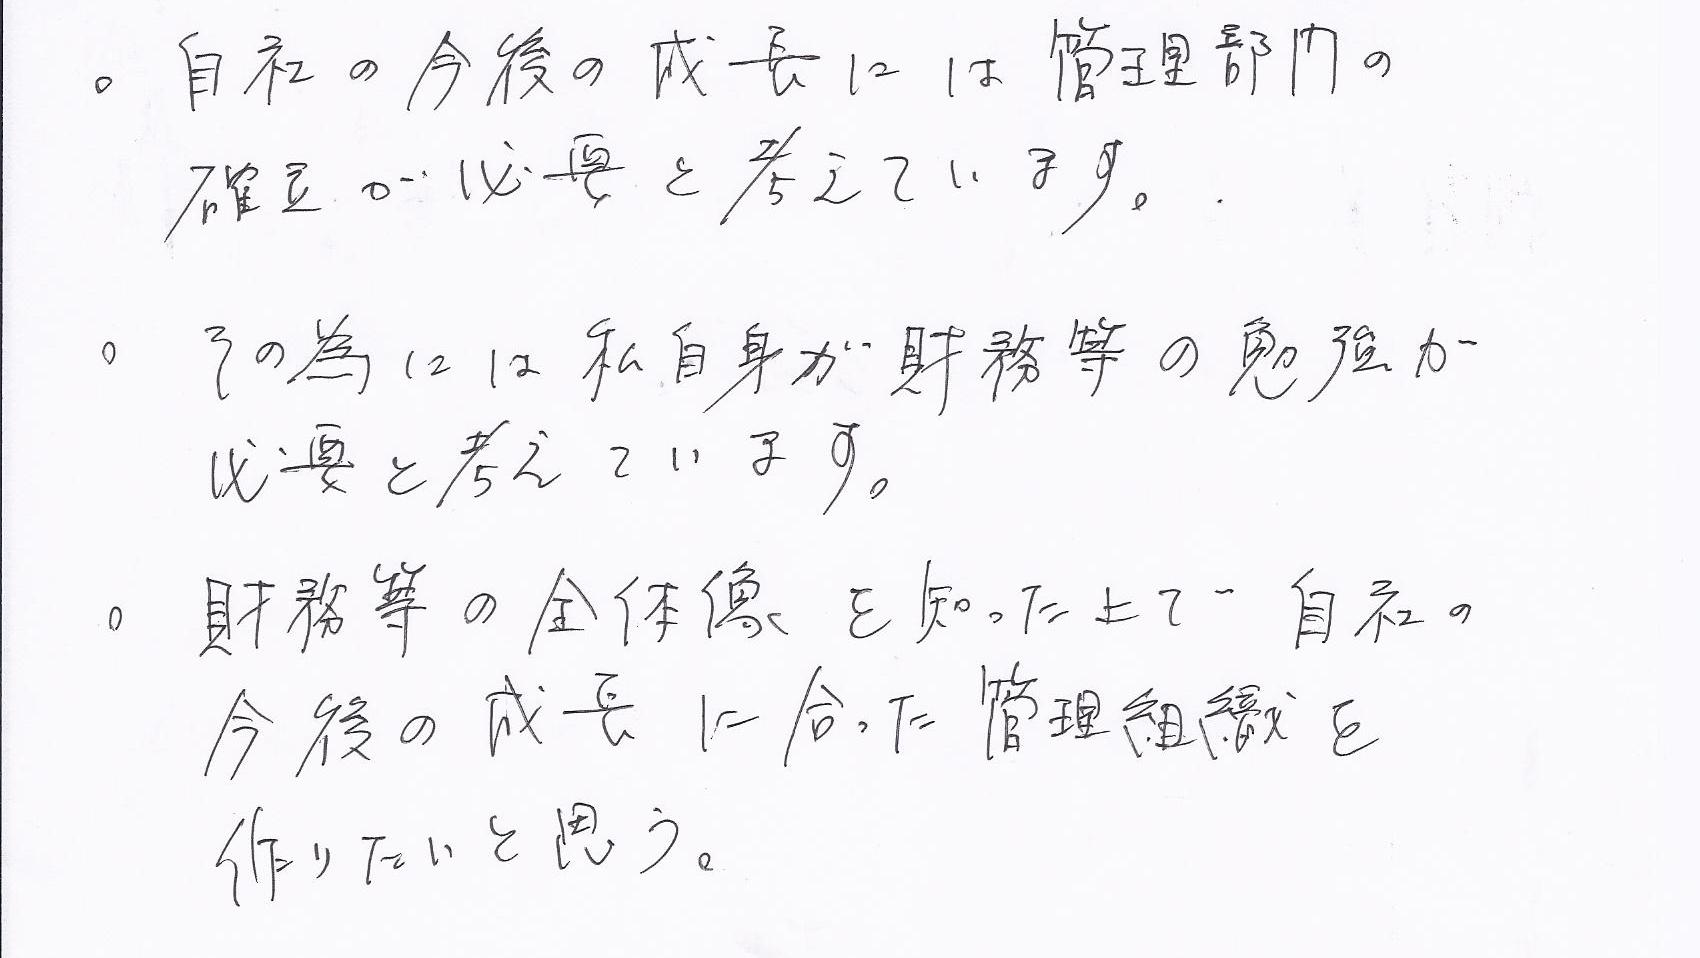 。自社の今後の成長には管理部門の
確立が必要と考えています。
。その為には私自身が財務等の勉強が
必要と考えています。
。財務等の全体像を知った上で自社の
今後の成長に合った管理組織を
作りたいと思う。